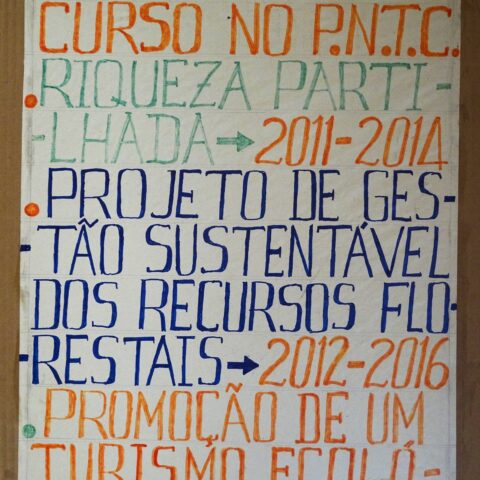 CURSO NO P.N.T.C.
RIQUEZA PARTI-
-LHADA → 2011-2014
PROJETO DE GES-
-TÃO SUSTENTÁVEL
DOS RECURSOS FLO-
-RESTAIS → 2012-2016
PROMOÇÃO DE UM
TURISMO ECOLÓ-